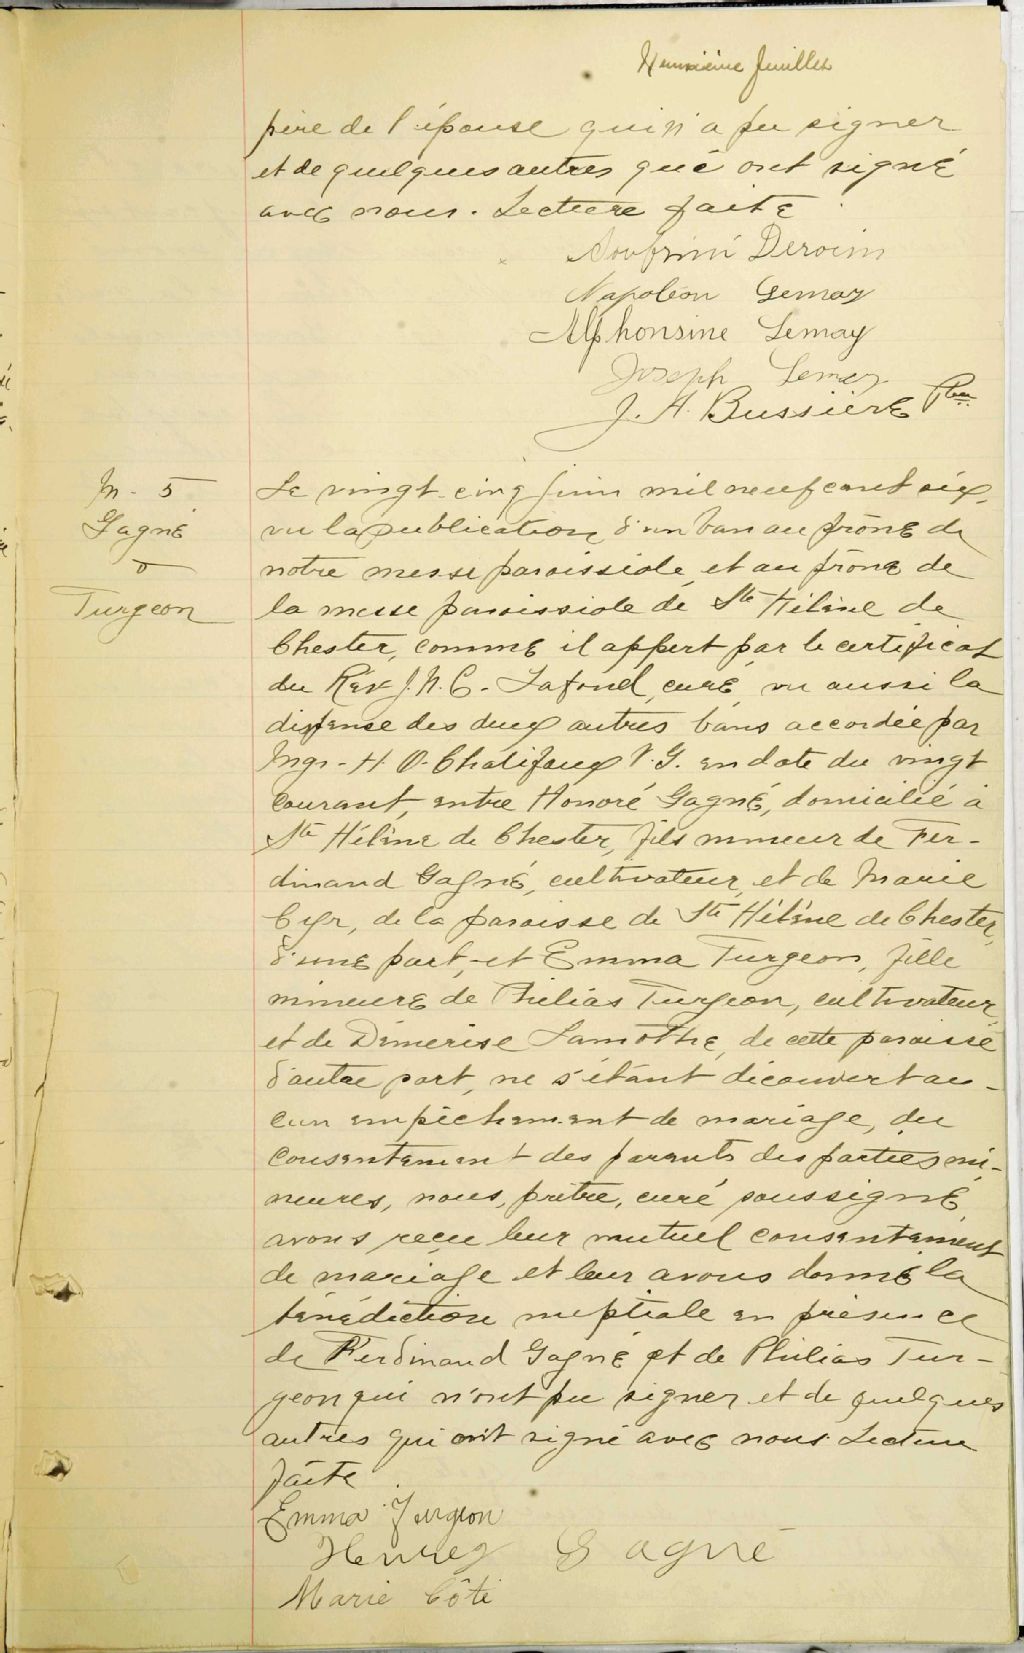 feuillet
père de l'épouse qui n'a pu signer
et de quelques autres qui ont signé
avec nous. Lecture faite.
Deroin
Napoléon Lemay
Alphonsine Lemay
Joseph Lemay
J. A. Bussière Ptre
M. 5
Gagné
&
Turgeon
Le vingt-cinq juin mil neuf cent six,
vu la publication d'un ban au prône de
notre messe paroissiale et au prône de
la messe paroissiale de Ste Hélène de
Chester, comme il appert par le certificat
du Rév J. N. C. Lafond, curé, vu aussi la
dispense des deux autres bans accordée par
Mgr. H O. Chalifoux V. G. en date du vingt
courant, entre Honoré Gagné, domicilié à
Ste Hélène de Chester, fils mineur de Fer-
dinand Gagné, cultivateur, et de Marie
Cyr, de la paroisse de Ste Hélène de Chester,
d'une part, et Emma Turgeon, fille
mineure de Philias Turgeon, cultivateur,
et de Démerise Lamothe, de cette paroisse
d'autre part, ne s'étant découvert au-
cun empêchement de mariage, du
consentement des parents des parties mi-
neures, nous, prêtre, curé soussigné,
avons reçu leur mutuel consentement
de mariage et leur avons donné la
bénédiction nuptiale en présence
de Ferdinand Gagné et de Philias Tur-
geon qui n'ont pu signer et de quelques
autres qui ont signé avec nous. Lecture
faite.
Emma Turgeon
Henrey Gagné
Marie Côté